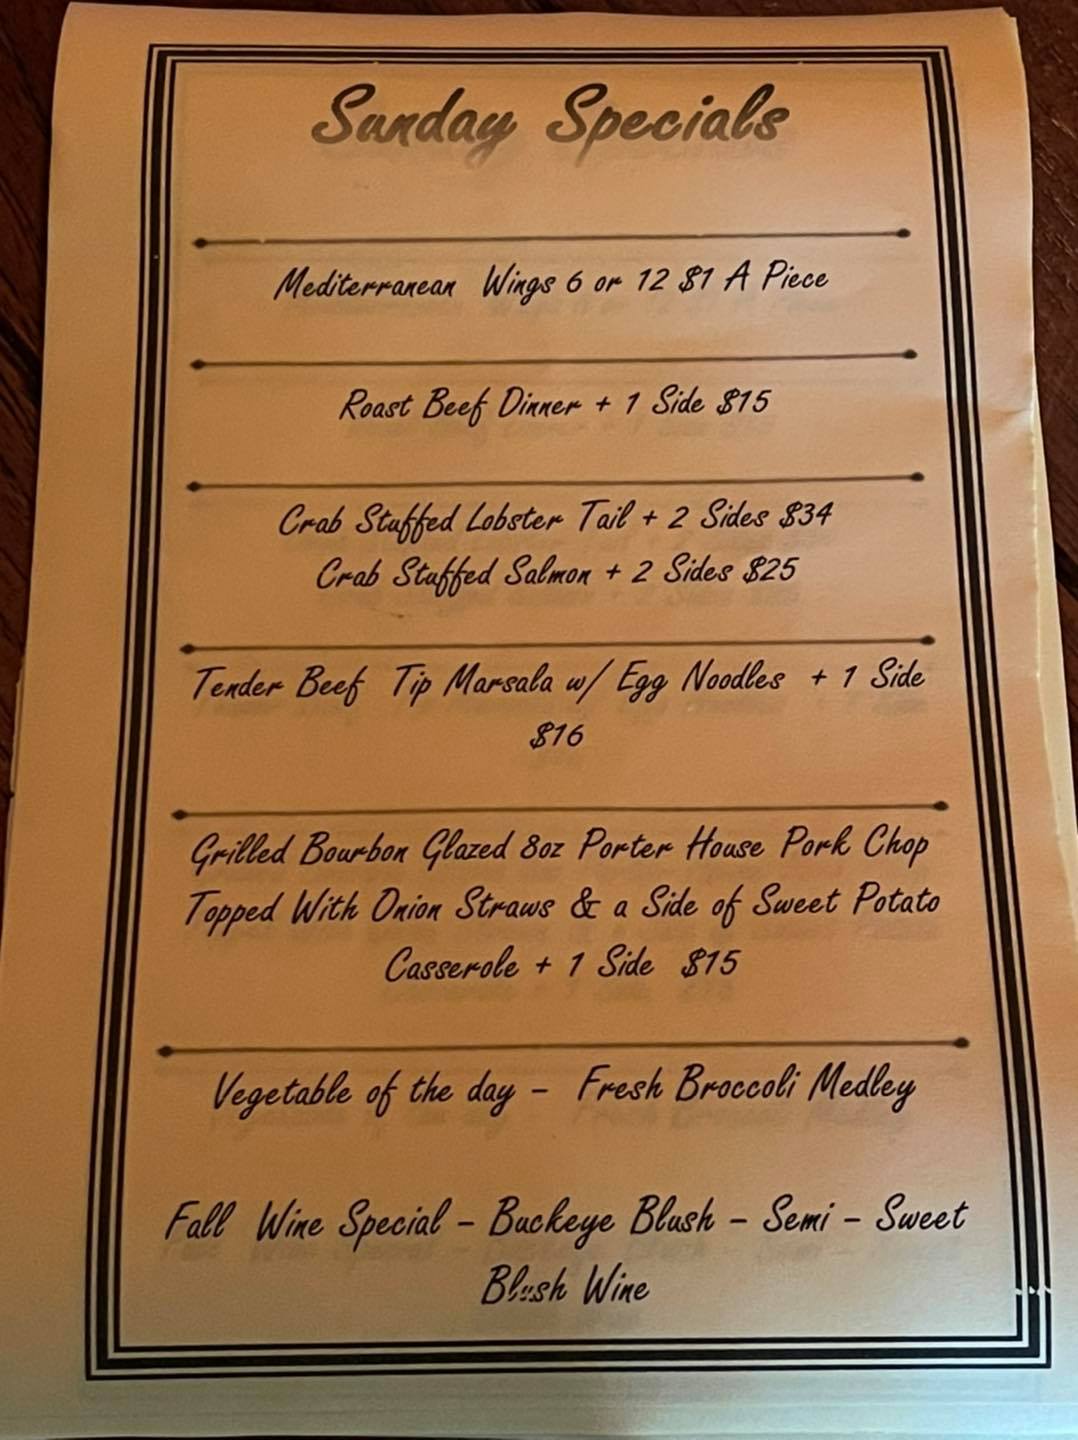 Sunday Specials
Mediterranean Wings 6 or 12 $1 A Piece
Roast Beef Dinner + 1 Side $15
Crab Stuffed Lobster Tail + 2 Sides $34
Crab Stuffed Salmon + 2 Sides $25
Tender Beef Tip Marsala w/ Egg Noodles + 1 Side
$16
Grilled Bourbon Glazed 8oz Porter House Pork Chop
Topped With Onion Straws & a Side of Sweet Potato
Casserole + 1 Side $15
Vegetable of the day - Fresh Broccoli Medley
Fall Wine Special - Buckeye Blush - Semi - Sweet
Blush Wine